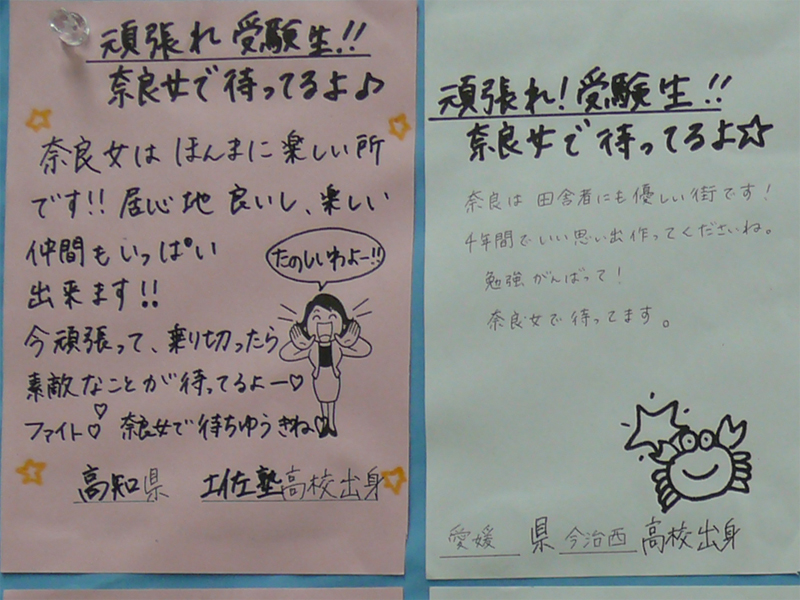 頑張れ 受験生!!
奈良女で待ってるよ♪
奈良女は ほんまに楽しい所
です!! 居心地 良いし、楽しい
仲間もいっぱい
出来ます!!
たのしいわよー!!
今頑張って、乗り切ったら
素敵なことが待ってるよー♡
ファイト♡ 奈良女で待ちゆうきね♡
高知県 土佐塾高校出身
頑張れ!受験生!!
奈良女で待ってるよ☆
奈良は田舎者にも優しい街です!
4年間でいい思い出作ってくださいね。
勉強がんばって!
奈良女で待ってます。
愛媛 県 今治西 高校出身